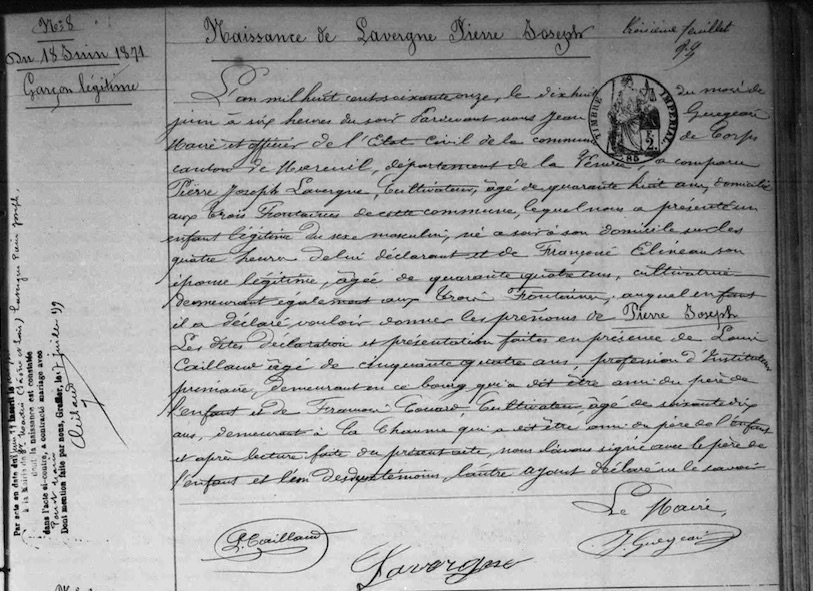 N° 8
Du 18 Juin 1871
Garçon légitime
Naissance de Lavergne Pierre Joseph
feuillet
L'an mil huit cent soixante onze, le dix huit du mois de
juin à six heures du soir Pardevant nous Jean Guegeais
Maire et officier de l'Etat Civil de la commune de Corps
canton de Mareuil, département de la Vendée, a comparu
Pierre Joseph Lavergne, Cultivateur, âgé de quarante huit ans, domicilié
aux Trois Fontaines de cette commune, lequel nous a présenté un
enfant légitime du sexe masculin, né a soir à son domicile sur les
quatre heures de lui déclarant et de Françoise Elineau son
épouse légitime, âgée de quarante quatre ans, cultivatrice
demeurant également aux Trois Fontaines, auquel enfant
il a déclaré vouloir donner les prénoms de Pierre Joseph
Les dites déclaration et présentation faites en présence de Louis
Caillaud âgé de cinquante quatre ans, profession d'Instituteur
primaire, demeurant en ce bourg qui a dit être ami du père de
l'enfant et de François Couard, Cultivateur, âgé de soixante dix
ans, demeurant à la Chaume qui a dit être ami du père de l'enfant
et après lecture faite du présent acte, nous l'avons signé avec le père de
l'enfant et l'un des deux témoins, l'autre ayant déclaré ne le savoir
Le Maire,
L. Caillaud
Lavergne
J. Guegeais
TIMBRE IMPERIAL
2
Par acte en date du juin 99 inscrit le
à la Mairie de Lavergne Pierre Joseph,
dont la naissance est constatée
dans l'acte ci-contre, a contracté mariage avec
Dont mention faite par nous, Greffier, le 7 juillet 99